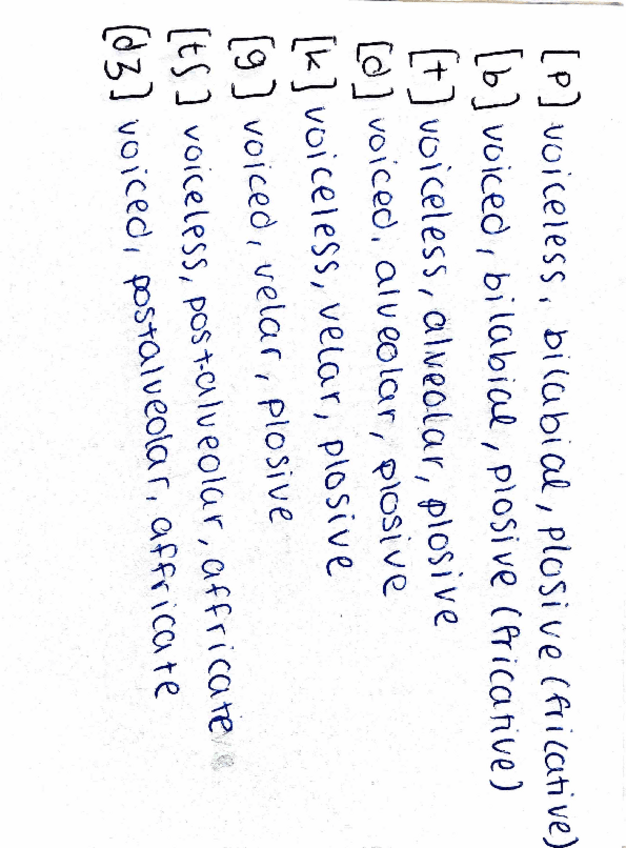 [p] voiceless, bilabial, plosive (fricative)
[b] voiced, bilabial, plosive (fricative)
[t] voiceless, alveolar, plosive
[d] voiced, alveolar, plosive
[k] voiceless, velar, plosive
[g] voiced, velar, plosive
[tʃ] voiceless, post-alveolar, affricate
[dʒ] voiced, postalveolar, affricate